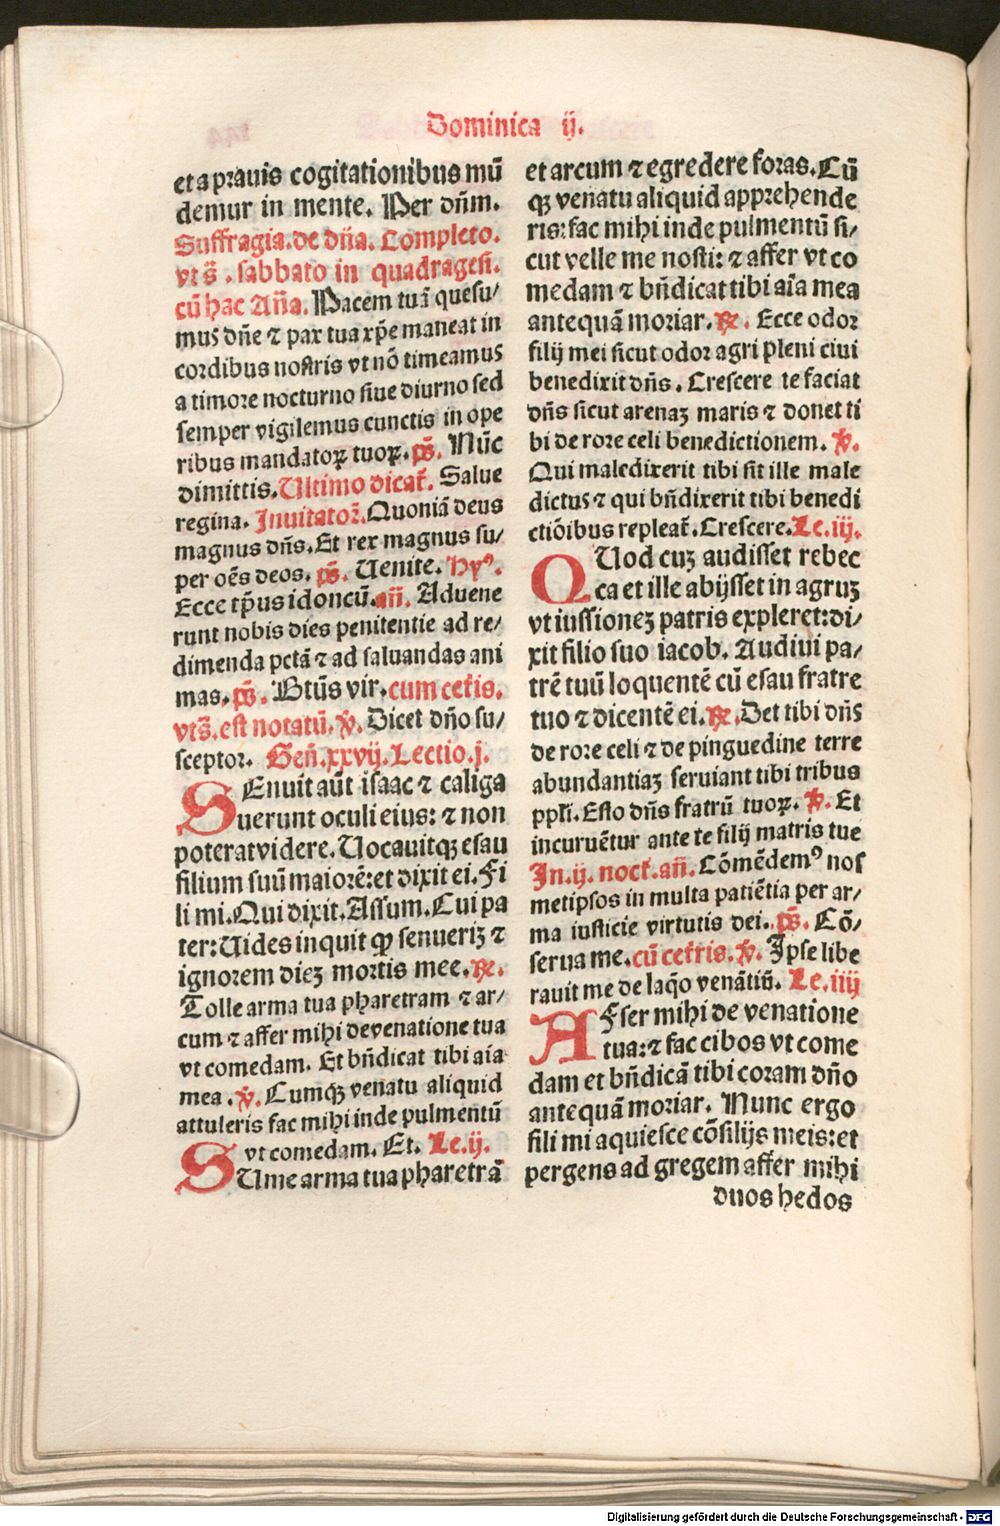 Dominica ij.
et a prauis cogitationibus mū
demur in mente. Per dn̄m.
Suffragia. de dn̄a. Completo.
vts̄. sabbato in quadragesi.
cū hac Ān̄a. Pacem tuā quesu/
mus dn̄e ⁊ pax tua xp̄e maneat in
cordibus nostris vt nō timeamus
a timore nocturno siue diurno sed
semper vigilemus cunctis in ope
ribus mandatoꝝ tuoꝝ. ps̄. Nūc
dimittis. Ultimo dicat̄. Salue
regina. Inuitator̄. Quoniā deus
magnus dn̄s. Et rex magnus su/
per oēs deos. ps̄. Uenite. Hyꝰ.
Ecce tp̄us idoneū. an̄. Aduene
runt nobis dies penitentie ad re/
dimenda pctā ⁊ ad saluandas ani
mas. ps̄. Btūs vir. cum cet̄is.
vts̄. est notatū. v̄. Dicet dn̄o su/
sceptor. Gen̄. xxvij. Lectio. j.
SEnuit aūt isaac ⁊ caliga
uerunt oculi eius: ⁊ non
poterat videre. Uocauitqꝫ esau
filium suū maiorē: et dixit ei. Fi
li mi. Qui dixit. Assum. Cui pa
ter: Uides inquit ꝙ senueriꝫ ⁊
ignorem dieꝫ mortis mee. ℟.
Tolle arma tua pharetram ⁊ ar/
cum ⁊ affer mihi de venatione tua
vt comedam. Et bn̄dicat tibi aīa
mea. v̄. Cumqꝫ venatu aliquid
attuleris fac mihi inde pulmentū
vt comedam. Et. Le. ij.
SUme arma tua pharetrā
et arcum ⁊ egredere foras. Cū
qꝫ venatu aliquid apprehende
ris: fac mihi inde pulmentū si/
cut velle me nosti: ⁊ affer vt co
medam ⁊ bn̄dicat tibi aīa mea
antequā moriar. ℟. Ecce odor
filij mei sicut odor agri pleni cīui
benedixit dn̄s. Crescere te faciat
dn̄s sicut arenaꝫ maris ⁊ donet ti
bi de rore celi benedictionem. v̄.
Qui maledixerit tibi sit ille male
dictus ⁊ qui bn̄dixerit tibi benedi
ctiōibus repleat̄. Crescere. Le. iij.
QUod cuꝫ audisset rebec
ca et ille abijsset in agruꝫ
vt iussioneꝫ patris expleret: di/
xit filio suo iacob. Audiui pa/
trē tuū loquentē cū esau fratre
tuo ⁊ dicentē ei. ℟. Det tibi dn̄s
de rore celi ⁊ de pinguedine terre
abundantiaꝫ seruiant tibi tribus
ppl̄i. Esto dn̄s fratrū tuoꝝ. v̄. Et
incuruētur ante te filij matris tue
In. ij. noct̄. an̄. Cōmēdemꝰ nos
metipsos in multa patiētia per ar/
ma iusticie virtutis dei. ps̄. Cō/
serua me. cū cet̄ris. v̄. Ipse libe
rauit me de laq̄o venātiū. Le. iiij
AFfer mihi de venatione
tua: ⁊ fac cibos vt come
dam et bn̄dicā tibi coram dn̄o
antequā moriar. Nunc ergo
fili mi aquiesce cōsilijs meis: et
pergens ad gregem affer mihi
duos hedos
Digitalisierung gefördert durch die Deutsche Forschungsgemeinschaft - DFG